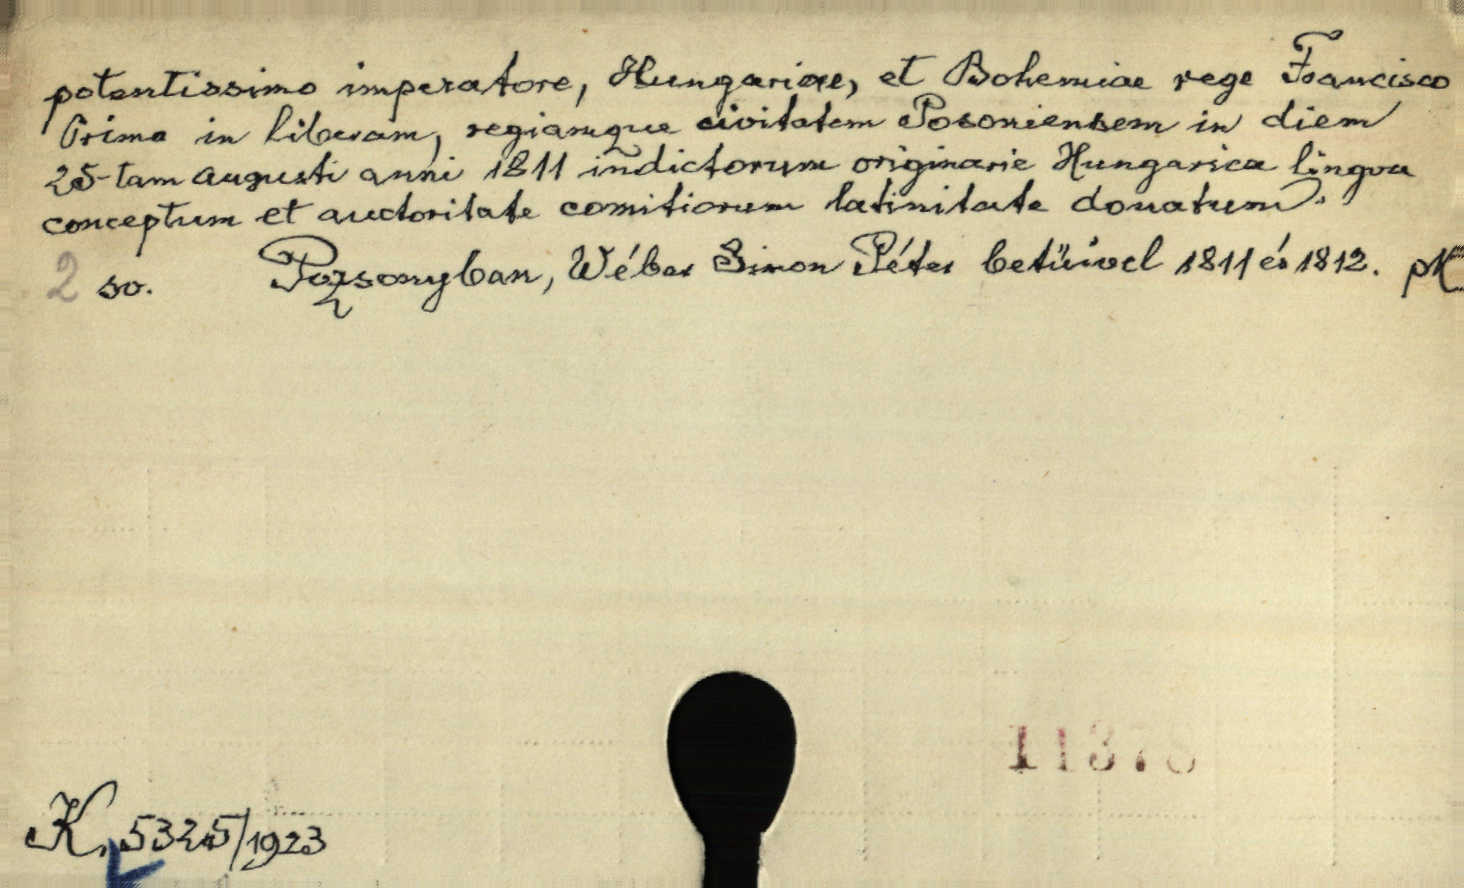 potentissimo imperatore, Hungariae, et Bohemiae rege Francisco
Primo in liberam, regiamque civitatem Posoniensem in diem
25-tam augusti anni 1811 indictorum originarie Hungarica lingva
conceptum et auctoritate comitiorum latinitate donatum.
2 so. Pozsonyban, Wéber Simon Péter betüivel 1811 és 1812.
11378
K, 5325/1923